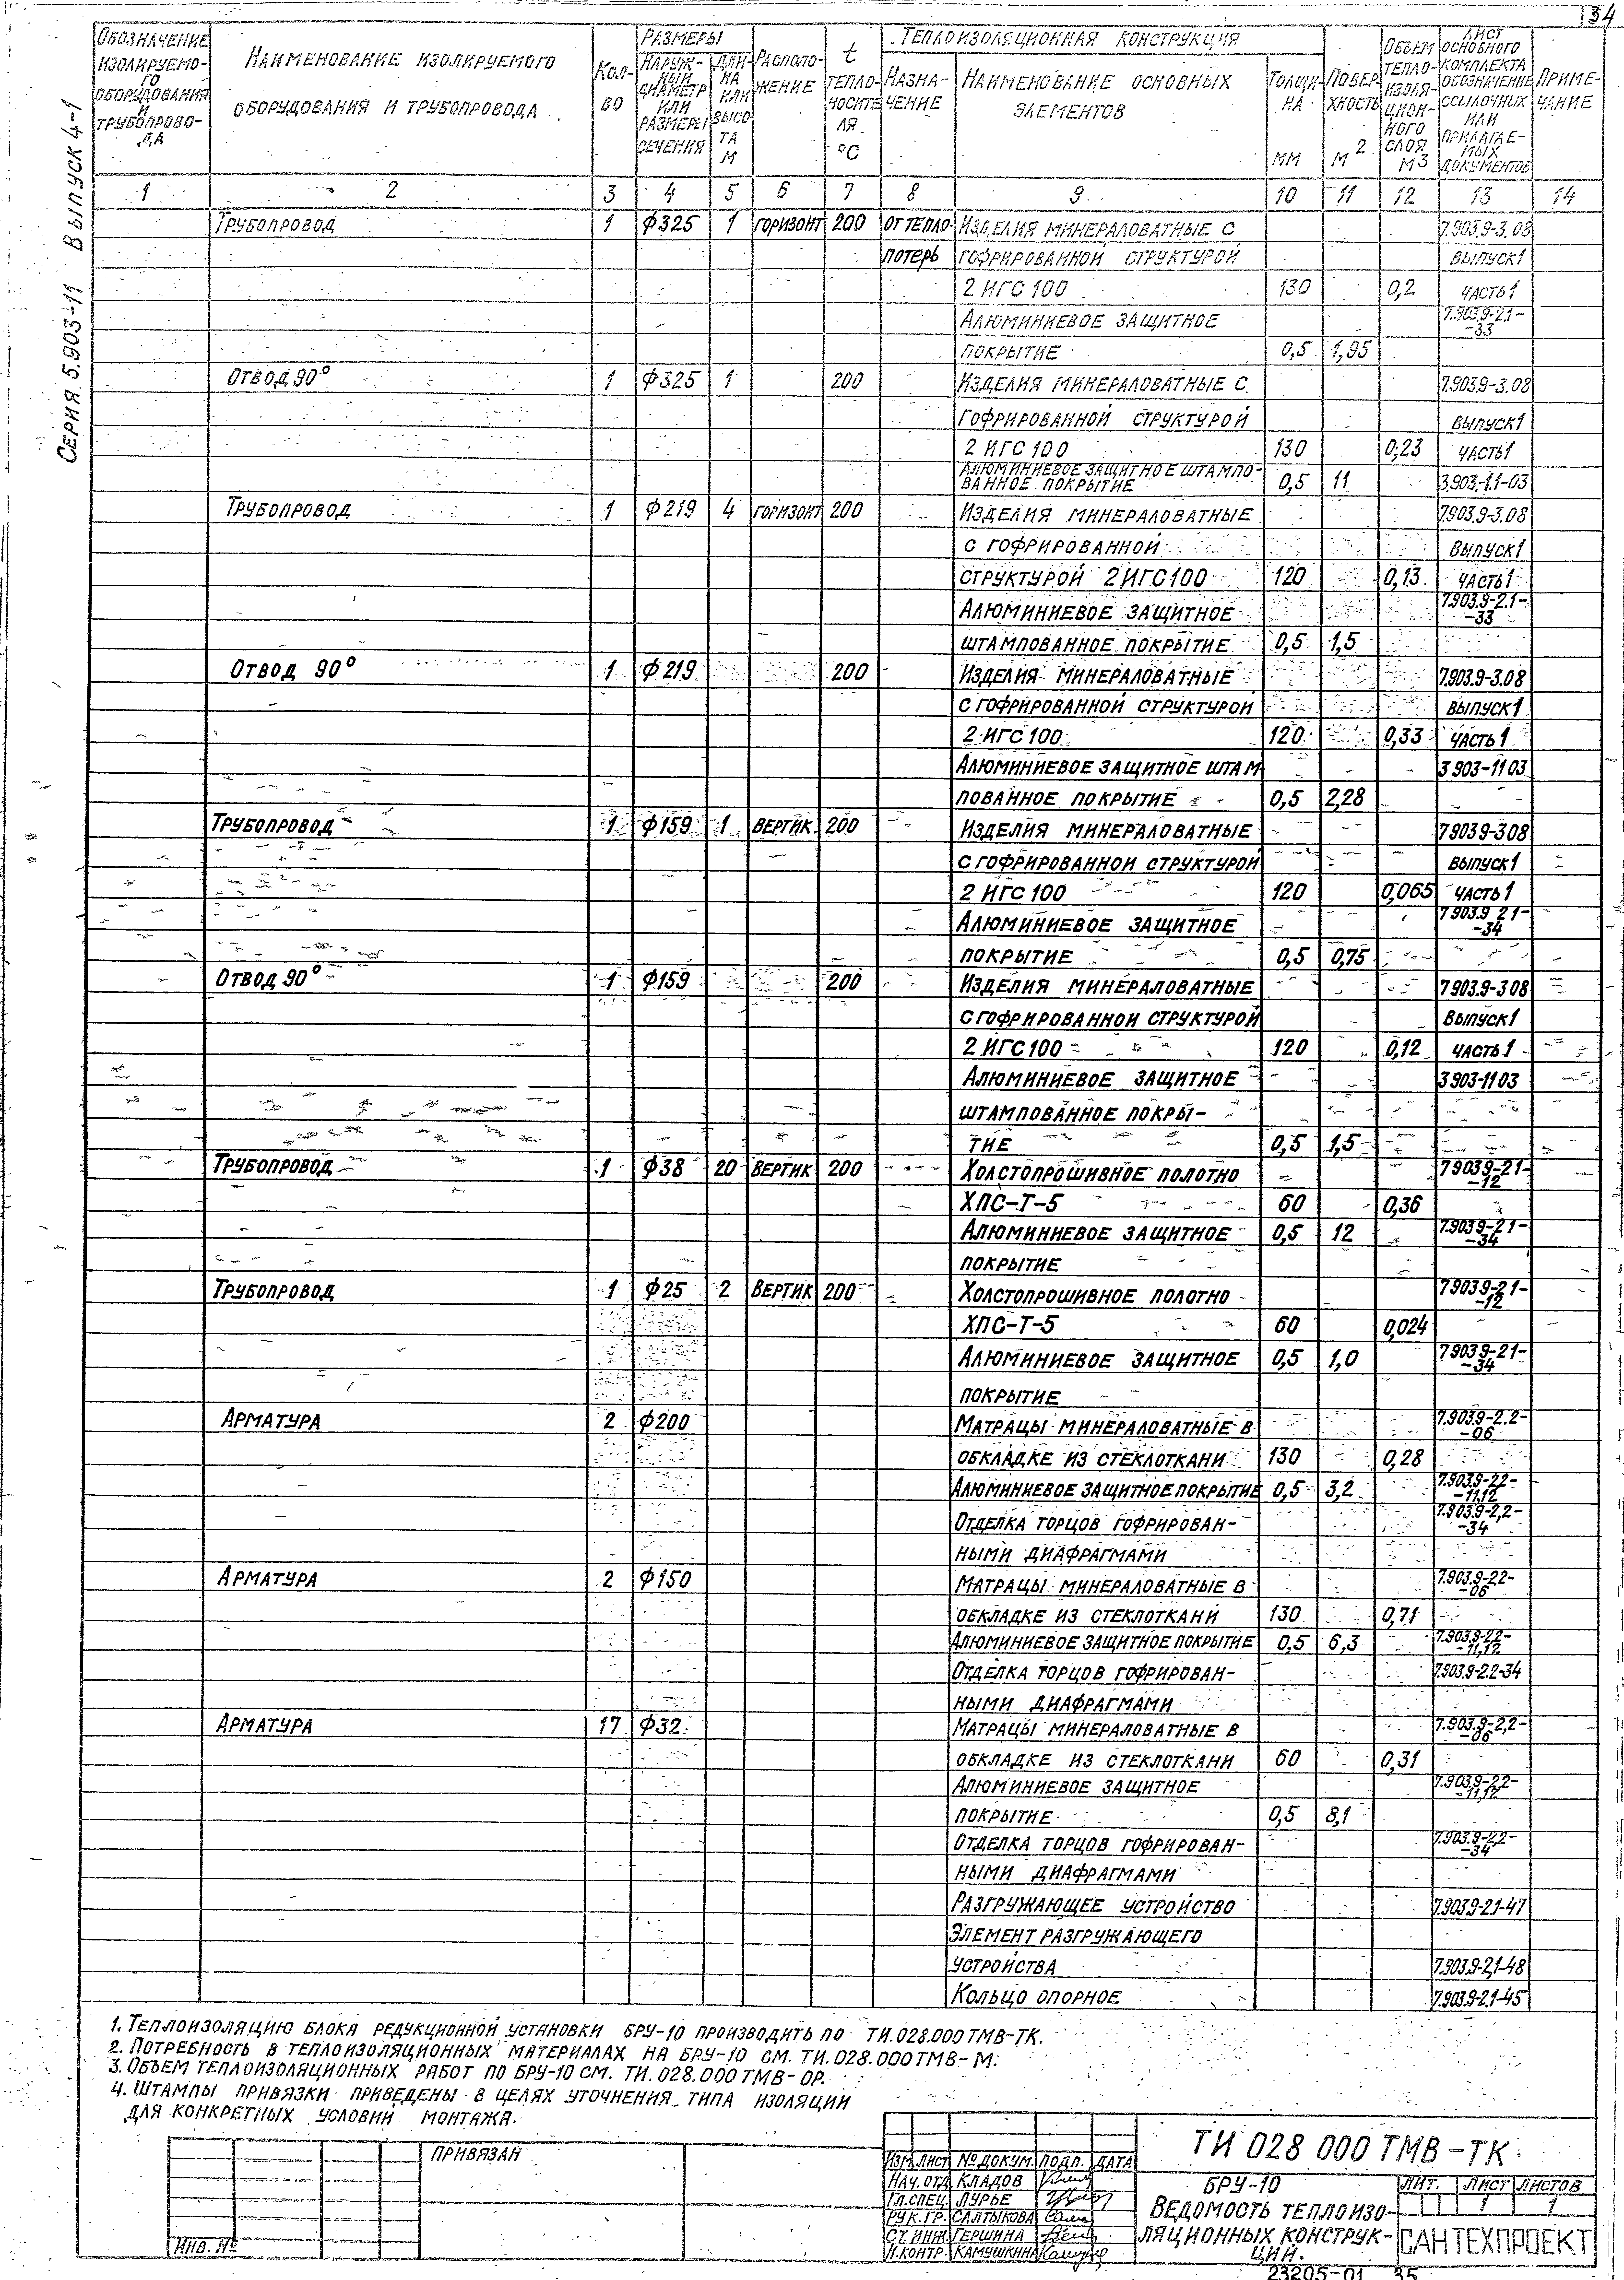 34
Серия 5.903-11 Выпуск 4-1
Обозначение изолируемого оборудования и трубопровода | Наименование изолируемого оборудования и трубопровода | Кол-во | Размеры | Расположение | t теплоносителя °C | Теплоизоляционная конструкция | Объем теплоизоляционного слоя м3 | Лист основного комплекта обозначение ссылочных или прилагаемых документов | Примечание
Наружный диаметр или размеры сечения | Длина или высота м | Назначение | Наименование основных элементов | Толщина мм | Поверхность м2
1 2 3 4 5 6 7 8 9 10 11 12 13 14
Трубопровод 1 ф325 1 горизонт 200 от тепло- Изделия минераловатные с 7.903.9-3.08
потерь гофрированной структурой выпуск1
2 ИГС 100 130 0,2 часть1
Алюминиевое защитное 7.903.9-2.1--33
покрытие 0,5 1,95
Отвод 90° 1 ф325 1 200 Изделия минераловатные с 7.903.9-3.08
гофрированной структурой выпуск1
2 ИГС 100 130 0,23 часть1
Алюминиевое защитное штампо-
ванное покрытие 0,5 11 3.903.-1.1-03
Трубопровод 1 ф219 4 горизонт 200 Изделия минераловатные 7.903.9-3.08
с гофрированной выпуск1
структурой 2 ИГС 100 120 0,13 часть1
Алюминиевое защитное 7.903.9-2.1--33
штампованное покрытие 0,5 1,5
Отвод 90° 1 ф219 200 Изделия минераловатные 7.903.9-3.08
с гофрированной структурой выпуск1
2 ИГС 100 120 0,33 часть 1
Алюминиевое защитное штам 3 903-11 03
пованное покрытие 0,5 2,28
Трубопровод 1 ф159 1 вертик. 200 Изделия минераловатные 7 903 9-3 08
с гофрированной структурой выпуск1
2 ИГС 100 120 0,065 часть 1
Алюминиевое защитное 7 903.9 2 1--34
покрытие 0,5 0,75
Отвод 90° 1 ф159 200 Изделия минераловатные 7 903.9-3 08
с гофрированной структурой выпуск1
2 ИГС 100 120 0,12 часть 1
Алюминиевое защитное 3 903-11 03
штампованное покры-
тие 0,5 1,5
Трубопровод 1 ф38 20 вертик 200 Холстопрошивное полотно 7 903.9-2 1--12
ХПС-Т-5 60 0,36
Алюминиевое защитное 0,5 12 7.903 9-2 1--34
покрытие
Трубопровод 1 ф25 2 вертик 200 Холстопрошивное полотно 7 903.9-2 1--12
ХПС-Т-5 60 0,024
Алюминиевое защитное 0,5 1,0 7 903 9-2 1--34
покрытие
Арматура 2 ф200 Матрацы минераловатные в 7.903.9-2.2--06
обкладке из стеклоткани 130 0,28
Алюминиевое защитное покрытие 0,5 3,2 7.903.9-2.2--11,12
Отделка торцов гофрирован- 7.903.9-2,2--34
ными диафрагмами
Арматура 2 ф150 Матрацы минераловатные в 7.903.9-2.2--06
обкладке из стеклоткани 130 0,71
Алюминиевое защитное покрытие 0,5 6,3 7.903.9-2.2--11,12
Отделка торцов гофрирован- 7.903.9-2.2-34
ными диафрагмами
Арматура 17 ф32 Матрацы минераловатные в 7.903.9-2,2--06
обкладке из стеклоткани 60 0,31
Алюминиевое защитное 7.903.9-2,2--11,12
покрытие 0,5 8,1
Отделка торцов гофрирован- 7.903.9-2,2--34
ными диафрагмами
Разгружающее устройство 7.903.9-2.1-47
Элемент разгружающего
устройства 7.903.9-2,1-48
Кольцо опорное 7.903.9-2.1-45
1. Теплоизоляцию блока редукционной установки БРУ-10 производить по ТИ.028.000 ТМВ-ТК.
2. Потребность в теплоизоляционных материалах на БРУ-10 см. ТИ.028.000 ТМВ-М.
3. Объем теплоизоляционных работ по БРУ-10 см. ТИ.028.000 ТМВ-ОР.
4. Штампы привязки приведены в целях уточнения типа изоляции
для конкретных условий монтажа.
Привязан
Инв. №
Изм. Лист № докум. Подп. Дата
Нач. отд. Кладов
Гл. спец. Лурье
Рук. гр. Салтыкова
Ст. инж. Гершина
Н. контр. Камушкина
ТИ 028 000 ТМВ-ТК
БРУ-10
Ведомость теплоизо-
ляционных конструк-
ций.
Лит. Лист Листов
1 1
САНТЕХПРОЕКТ
23205-01 35